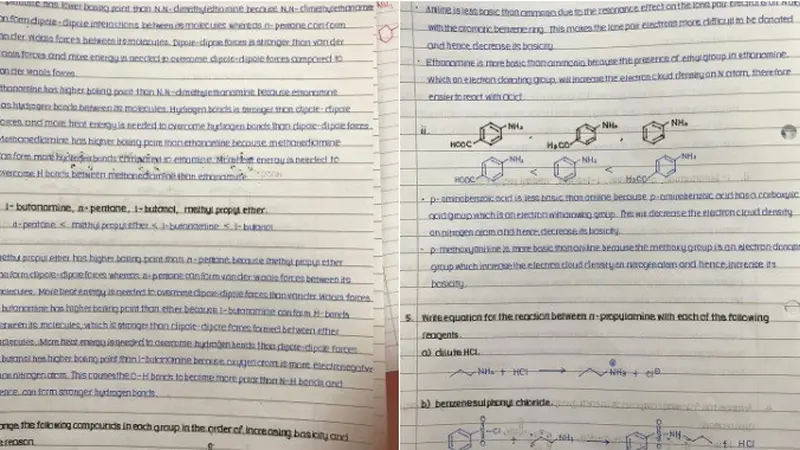 has lower boiling point than N,N-dimethylethanamine because N,N-dimethylethanamine
can form dipole-dipole interactions between its molecules whereas n-pentane can form
van der Waals forces between its molecules. Dipole-dipole forces is stronger than van der
Waals forces and more energy is needed to overcome dipole-dipole forces compared to
van der Waals forces.
ethanamine has higher boiling point than N,N-dimethylethanamine because ethanamine
has hydrogen bonds between its molecules. Hydrogen bonds is stronger than dipole-dipole
forces, and more heat energy is needed to overcome hydrogen bonds than dipole-dipole forces.
Methanediamine has higher boiling point than ethanamine because methanediamine
can form more hydrogen bonds
energy is needed to
overcome H bonds between methanediamine than ethanamine.
1-butanamine, n-pentane, 1-butanol, methyl propyl ether.
n-pentane < methyl propyl ether < 1-butanamine < 1-butanol
methyl propyl ether has higher boiling point than n-pentane because methyl propyl ether
can form dipole-dipole forces whereas n-pentane can form van der Waals forces between its
molecules. More heat energy is needed to overcome dipole-dipole forces than van der Waals forces.
1-butanamine has higher boiling point than ether because 1-butanamine can form H-bonds
between its molecules, which is stronger than dipole-dipole forces formed between ether
molecules. More heat energy is needed to overcome hydrogen bonds than dipole-dipole forces.
1-butanol has higher boiling point than 1-butanamine because oxygen atom is more electronegative
than nitrogen atom. This causes the O-H bonds to become more polar than N-H bonds and
hence, can form stronger hydrogen bonds.
the following compounds in each group in the order of increasing basicity and
reason.
NH₂
• Aniline is less basic than ammonia due to the resonance effect on the lone pair
with the aromatic benzene ring. This makes the lone pair electrons more difficult to be donated
and hence decrease its basicity.
• Ethanamine is more basic than ammonia because the presence of ethyl group in ethanamine,
which an electron donating group, will increase the electron cloud density on N atom, therefore
easier to react with acid.
ii.
HOOC NH₂ , H₃CO NH₂ , NH₂
HOOC NH₂ < NH₂ < H₃CO NH₂
• p-aminobenzoic acid is less basic than aniline because p-aminobenzoic acid has a carboxylic
acid group which is an electron withdrawing group. This will decrease the electron cloud density
on nitrogen atom and hence, decrease its basicity.
• p-methoxyaniline is more basic than aniline because the methoxy group is an electron donating
group which increase the electron cloud density on nitrogen atom and hence, increase its
basicity.
5. Write equation for the reaction between n-propylamine with each of the following
reagents.
a) dilute HCl.
NH₂ + HCl → NH₃ ⊕ + Cl⊖
b) benzenesulphonyl chloride.
O S O Cl + NH₂ → O S O NH + HCl